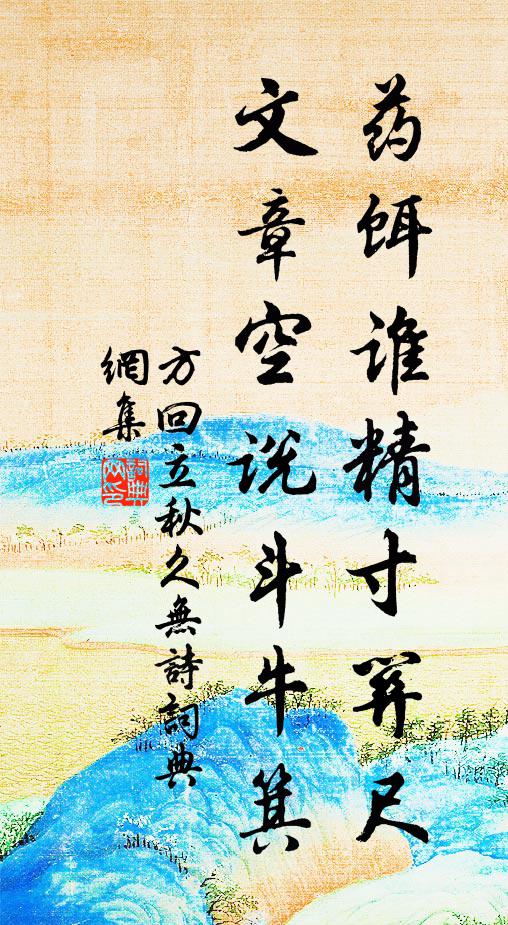 药饵谁精寸関尺
文章空说斗牛箕
方回立秋久無詩詞典
網集